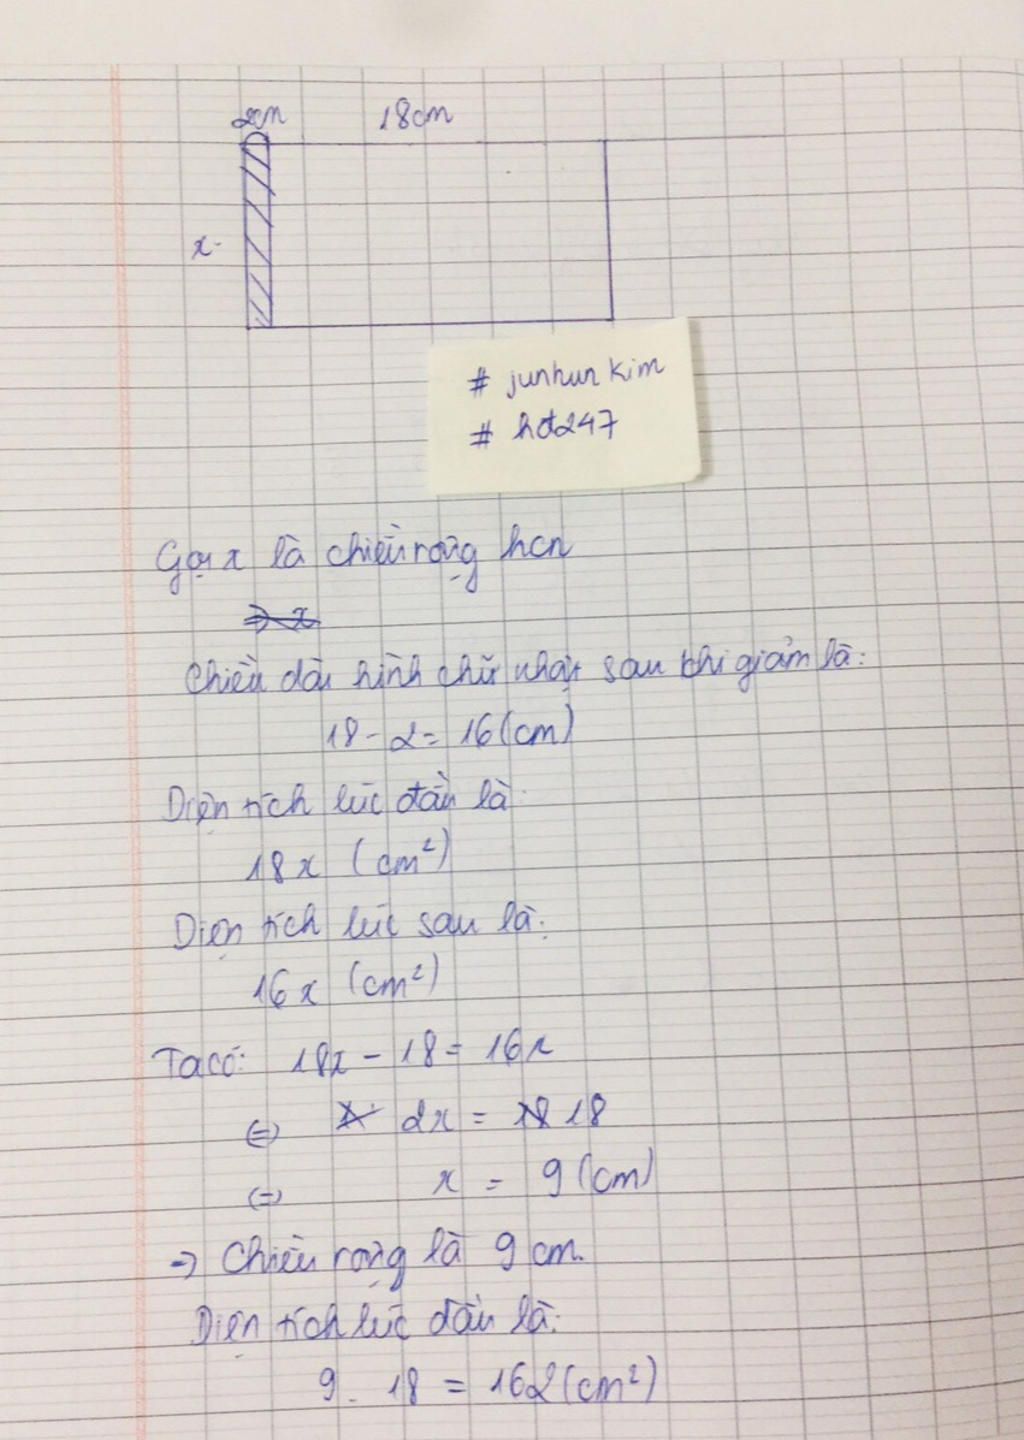 2cm 18cm
x
# junhun kim
# hđ247
Gọi x là chiều rộng hcn
⇒ x
Chiều dài hình chữ nhật sau khi giảm là:
18 - 2 = 16 (cm)
Diện tích lúc đầu là:
18x (cm²)
Diện tích lúc sau là:
16x (cm²)
Ta có: 18x - 18 = 16x
⇔ 2x = 18
⇔ x = 9 (cm)
⇒ Chiều rộng là 9 cm.
Diện tích lúc đầu là:
9 . 18 = 162 (cm²)